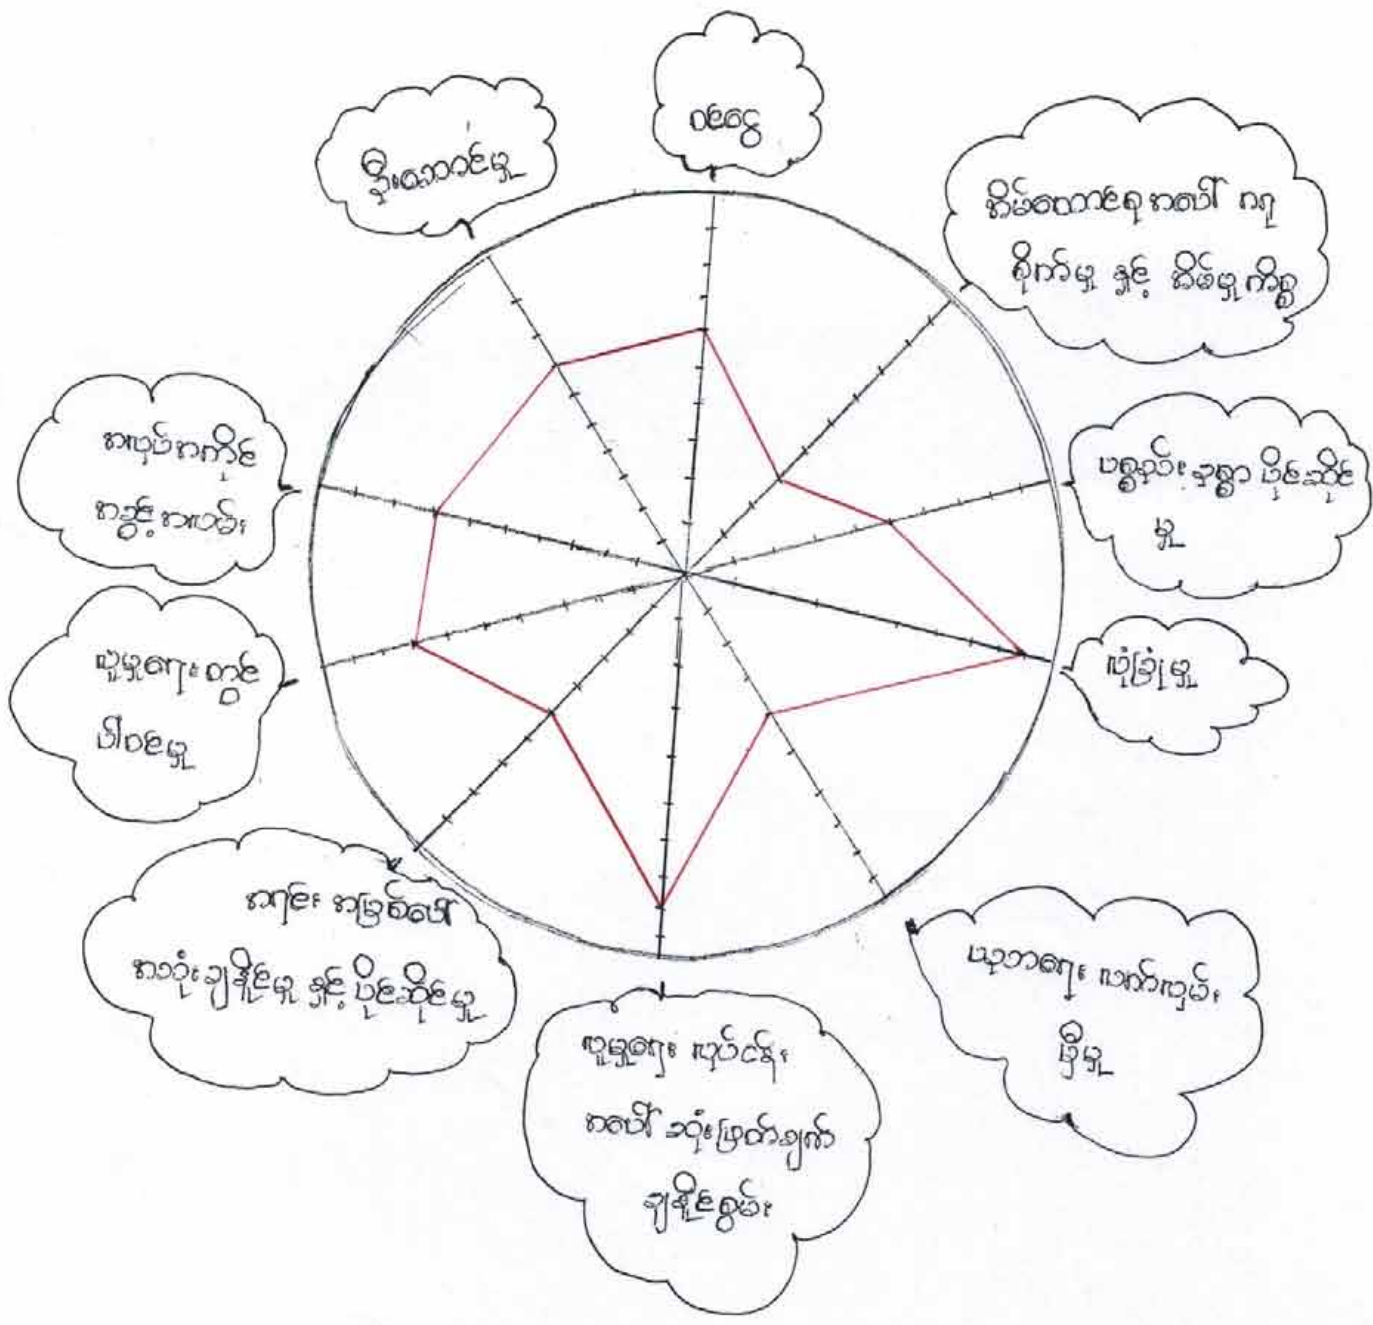 ဝင်ငွေ
အိမ်ထောင်စု အပေါ် ဂရု
စိုက်မှု နှင့် အိမ်မှုကိစ္စ
ပစ္စည်းဥစ္စာ ပိုင်ဆိုင်
မှု
လုံခြုံမှု
ယုဘရေး လက်လှမ်း
မှီမှု
လူမှုရေး လုပ်ငန်း
အပေါ် ဆုံးဖြတ်ချက်
ချနိုင်စွမ်း
အရင်း အမြစ်ပေါ်
အသုံးချနိုင်မှု နှင့် ပိုင်ဆိုင်မှု
လူမှုရေးတွင်
ပါဝင်မှု
အလုပ်အကိုင်
အခွင့်အလမ်း
ဦးဆောင်မှု